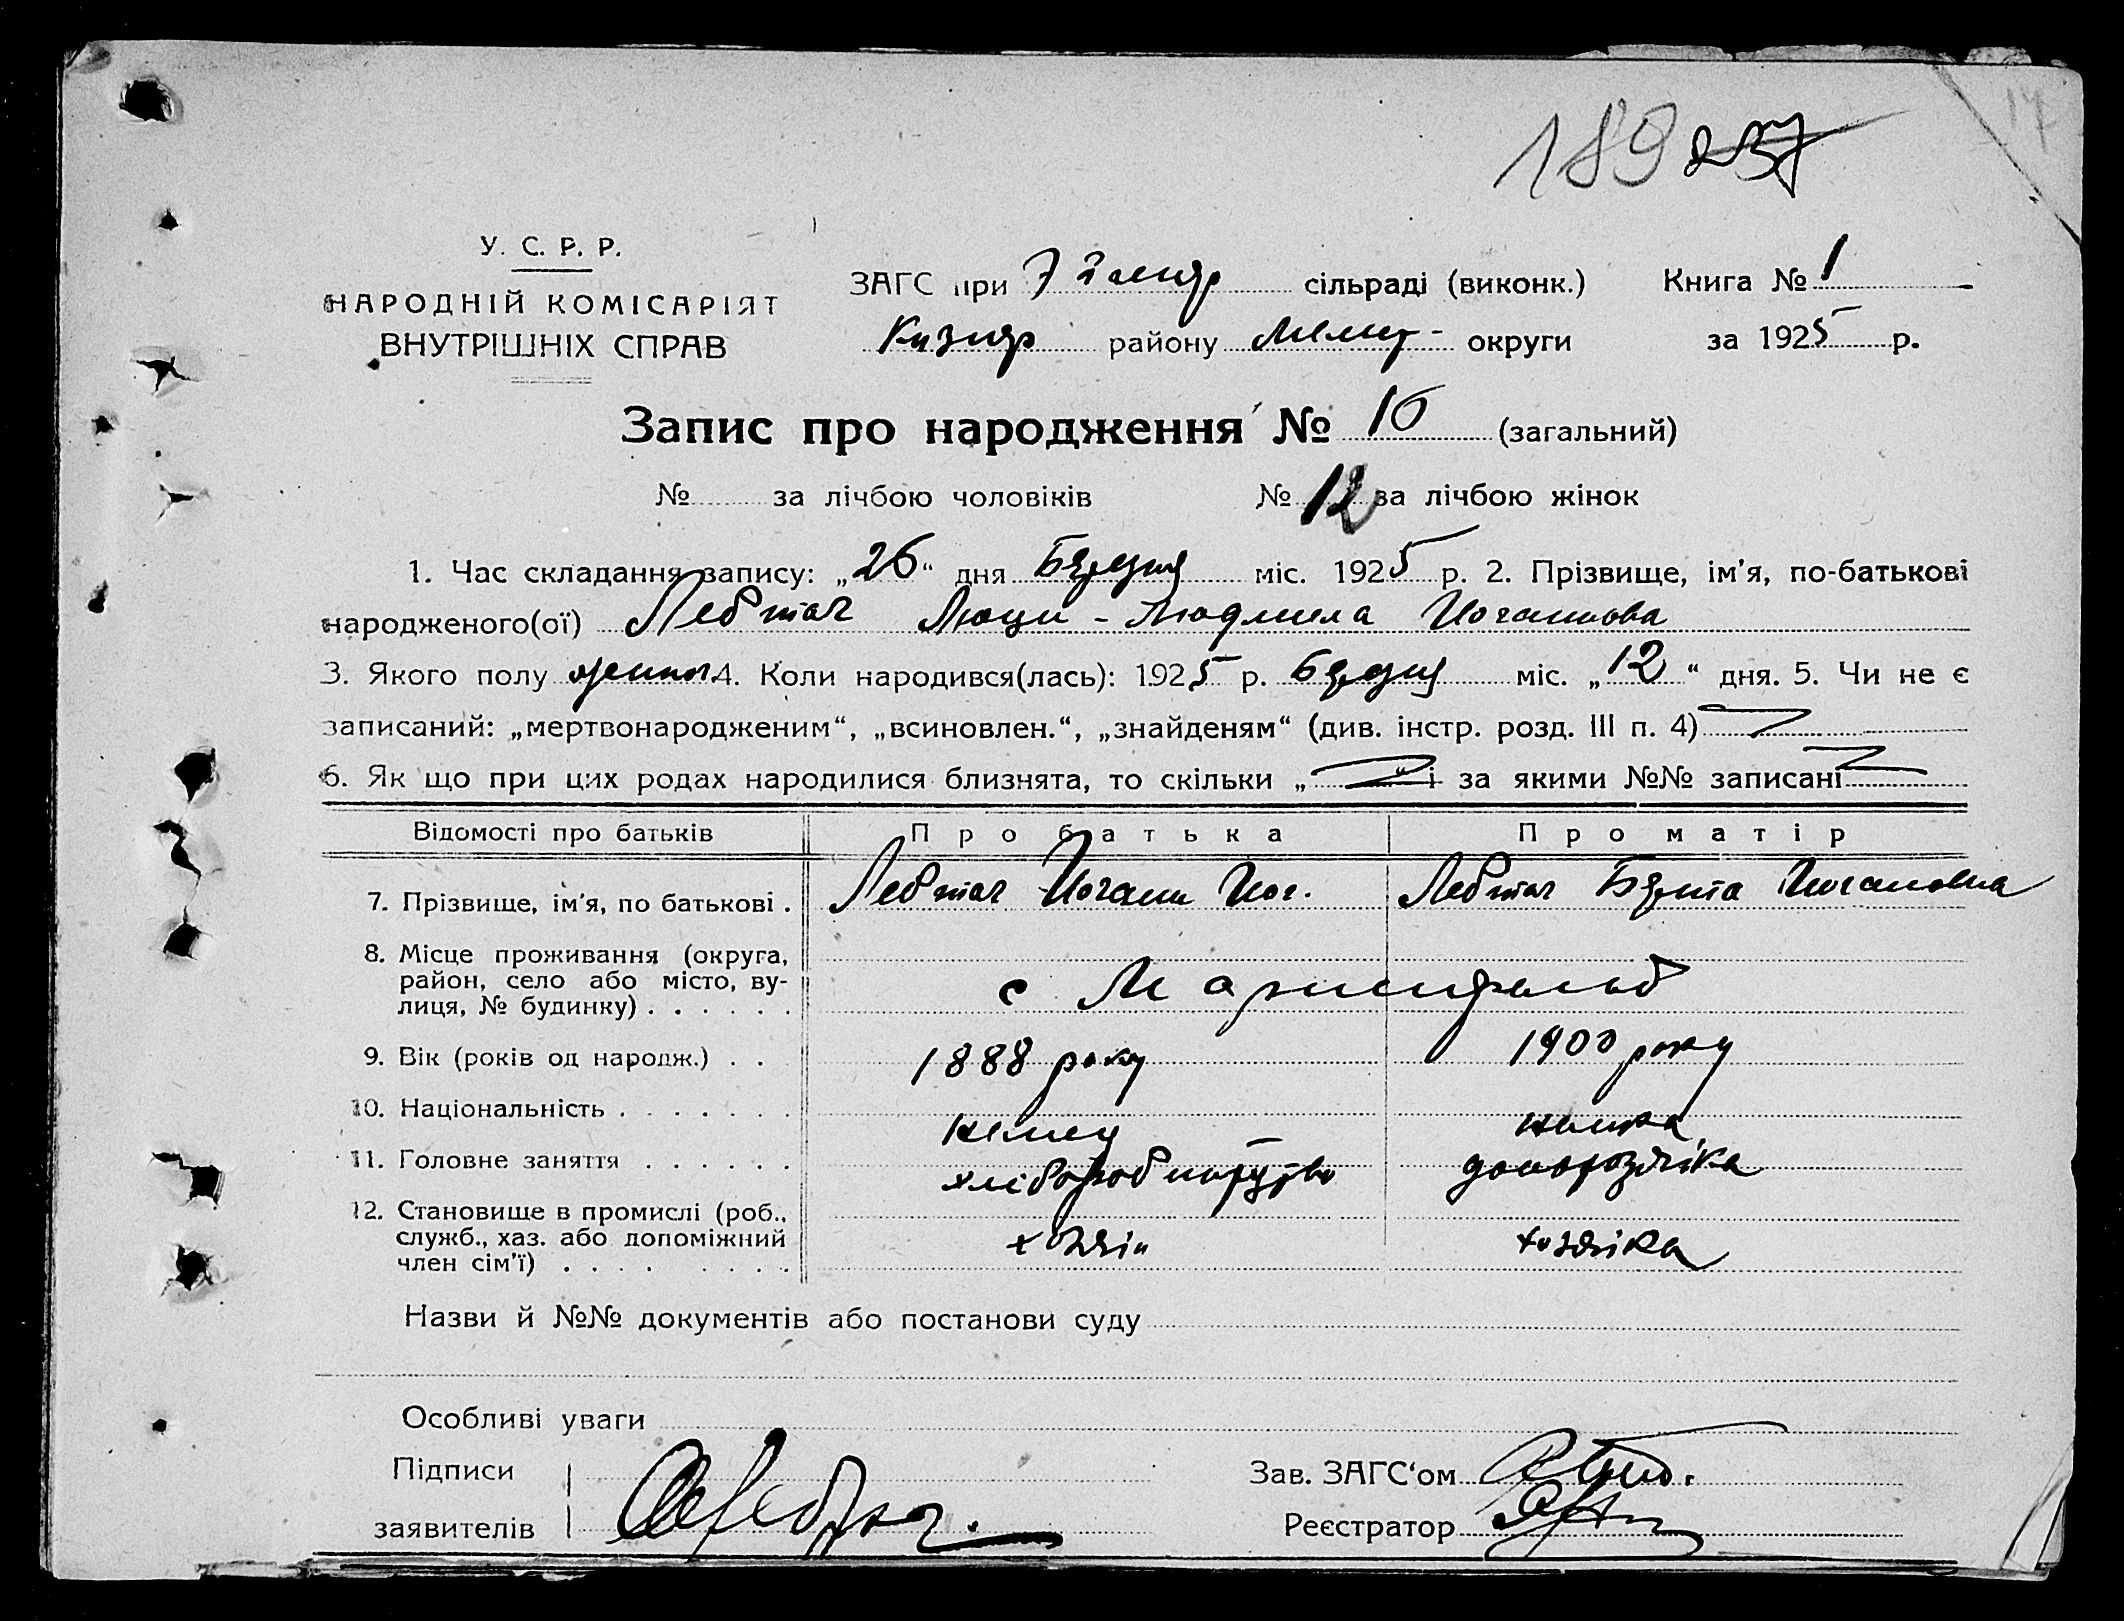 17
189 237
У. С. Р. Р.
НАРОДНІЙ КОМІСАРІЯТ
ВНУТРІШНІХ СПРАВ
ЗАГС при сільраді (виконк.) Книга № 1
району округи за 1925 р.
Запис про народження № 16 (загальний)
№ за лічбою чоловіків № 12 за лічбою жінок
1. Час складання запису: „26“ дня Березня міс. 1925 р. 2. Прізвище, ім'я, по-батькові
народженого(ої) Лебтаг Люци - Людмила Иогановa
3. Якого полу 4. Коли народився(лась): 1925 р. Березня міс. „12“ дня. 5. Чи не є
записаний: „мертвонародженим“, „всиновлен.“, „знайденям“ (див. інстр. розд. III п. 4)
6. Як що при цих родах народилися близнята, то скільки „ “ і за якими №№ записані
Відомості про батьків Про батька Про матір
7. Прізвище, ім'я, по батькові . Лебтаг Иоганн Иог. Лебтаг Берта Иогановна
8. Місце проживання (округа,
район, село або місто, ву-
лиця, № будинку) . . . . . . с Мариенфельд
9. Вік (років од народж.) . . 1888 року 1900 року
10. Національність . . . . . . . немец немка
11. Головне заняття . . . . . . хліборобництво
12. Становище в промислі (роб.,
служб., хаз. або допоміжний
член сім'ї) . . . . . . . . хозяін хозяіка
Назви й №№ документів або постанови суду
Особливі уваги
Підписи
заявителів
Зав. ЗАГС‘ом
Реєстратор